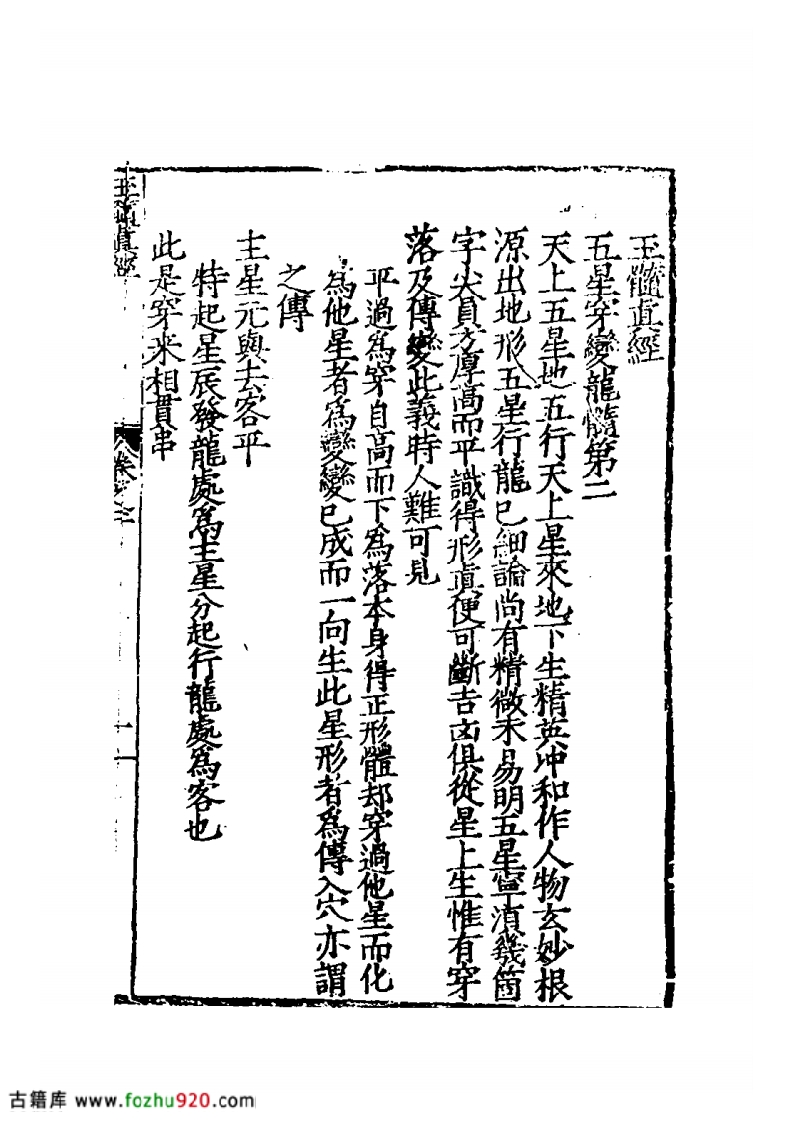 玉髓真經
五星穿變龍髓第二
天上五星地五行天上星來地下生精英冲和作人物玄妙根
源出地形五星行龍已細論尚有精微未易明五星寧湏幾箇
字尖員方厚高而平識得形真便可斷吉凶俱從星上生惟有穿
落及傳變此義時人難可見
平過爲穿自高而下爲落本身得正形體却穿過他星而化
爲他星者爲變變已成而一向生此星形者爲傳入穴亦謂
之傳
主星元與去客平
特起星辰發龍處爲主星分起行龍處爲客也
此是穿来相貫串
玉髓真經
卷之
古籍库 www.fozhu920.com